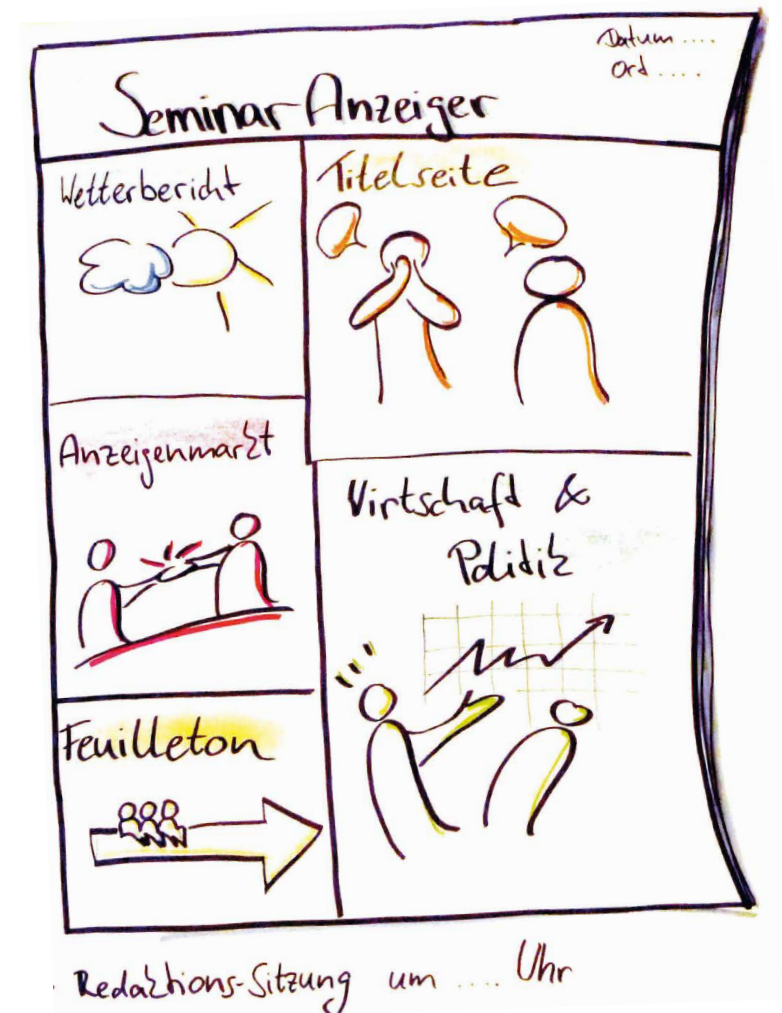 Datum ....
Ort ....
Seminar-Anzeiger
Wetterbericht
Titelseite
Anzeigenmarkt
Wirtschaft &
Politik
Feuilleton
Redaktions-Sitzung um .... Uhr